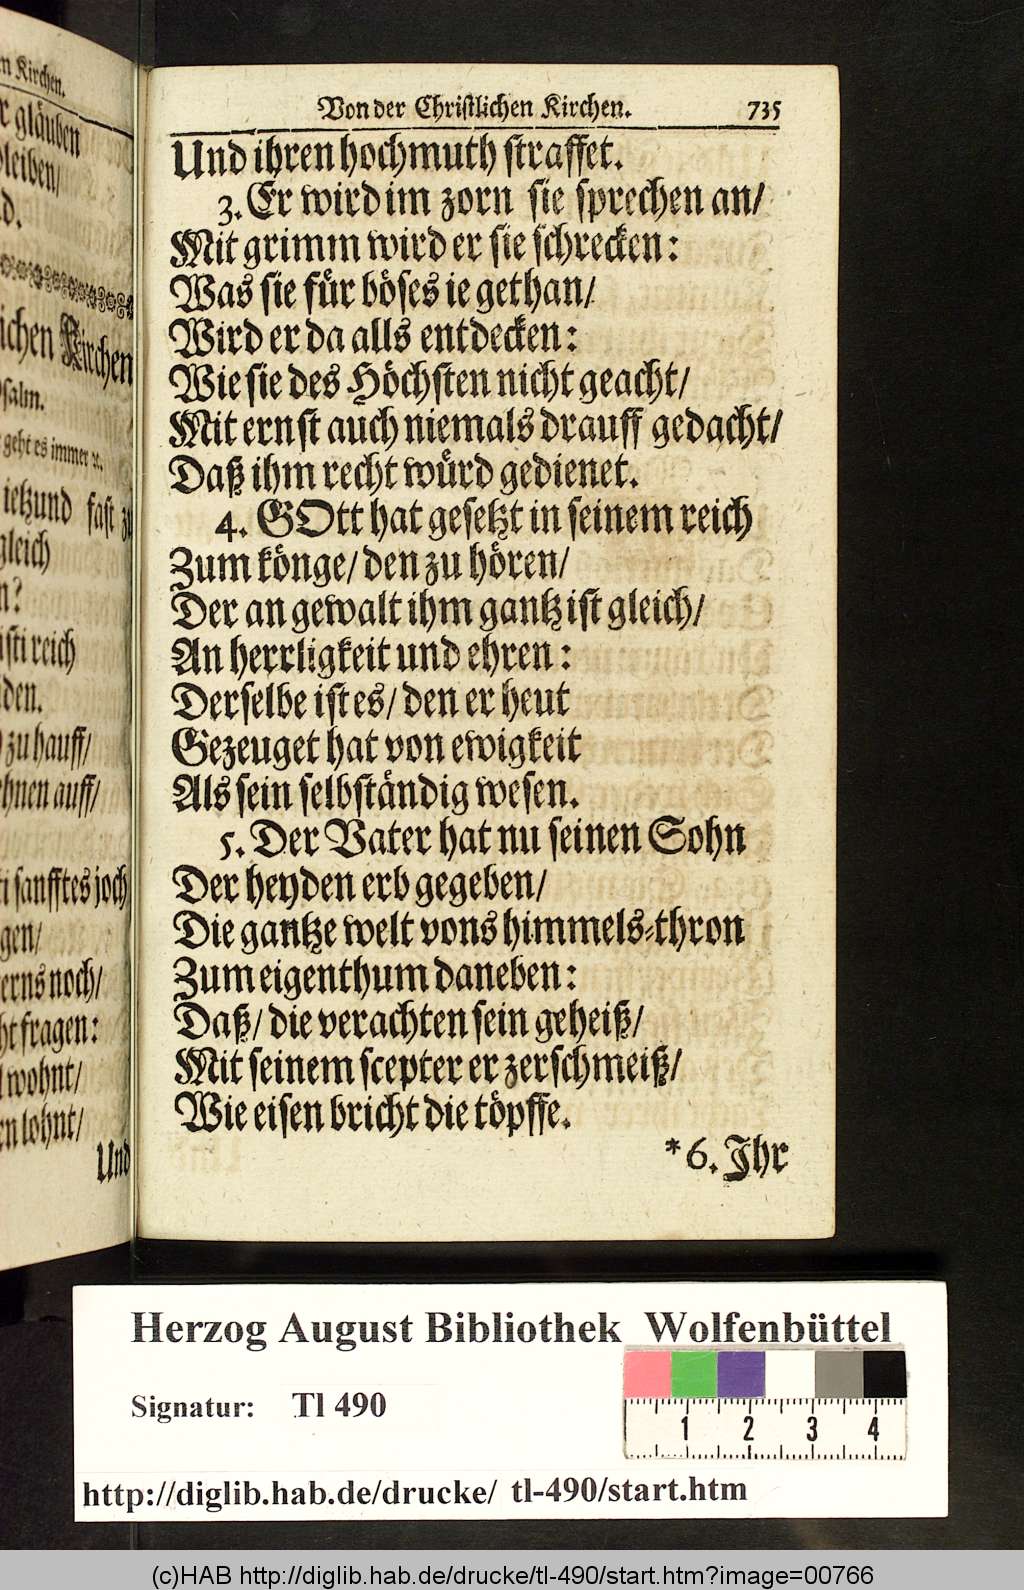 n Kirchen.
r gläuben
leiben/
d.
ichen Kirchen
salm.
geht es immer ꝛc.
ietzund fast zu
gleich
n?
isti reich
den.
zu hauff/
ehnen auff/
ti sanfftes joch
gen/
erns noch/
ht fragen:
wohnt/
rn lohnt/
Und
Von der Christlichen Kirchen. 735
Und ihren hochmuth straffet.
3. Er wird im zorn sie sprechen an/
Mit grimm wird er sie schrecken:
Was sie für böses ie gethan/
Wird er da alls entdecken:
Wie sie des Höchsten nicht geacht/
Mit ernst auch niemals drauff gedacht/
Daß ihm recht würd gedienet.
4. GOtt hat gesetzt in seinem reich
Zum könge/ den zu hören/
Der an gewalt ihm gantz ist gleich/
An herrligkeit und ehren:
Derselbe ist es/ den er heut
Gezeuget hat von ewigkeit
Als sein selbständig wesen.
5. Der Vater hat nu seinen Sohn
Der heyden erb gegeben/
Die gantze welt vons himmels-thron
Zum eigenthum daneben:
Daß/ die verachten sein geheiß/
Mit seinem scepter er zerschmeiß/
Wie eisen bricht die töpffe.
*6. Ihr
Herzog August Bibliothek Wolfenbüttel
Signatur: Tl 490
1 2 3 4
http://diglib.hab.de/drucke/ tl-490/start.htm
(c)HAB http://diglib.hab.de/drucke/tl-490/start.htm?image=00766